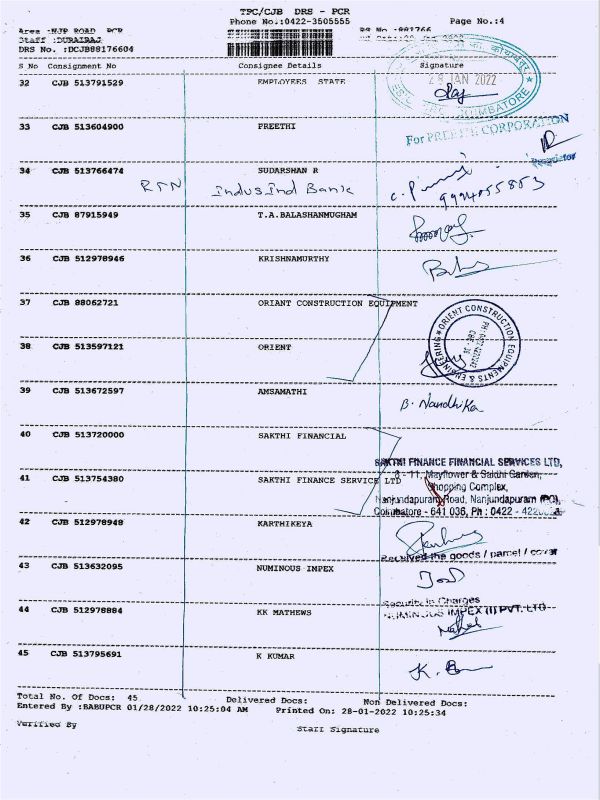 TPC/CJB DRS - PCR
Phone No.:0422-3505555 Page No.:4
Area :NJP ROAD PCR
Staff :DURAIRAJ
DRS No. :DCJB88176604
S No Consignment No Consignee Details Signature
32 CJB 513791529 EMPLOYEES STATE
28 JAN 2022
COIMBATORE
33 CJB 513604900 PREETHI
For PREETHI CORPORATION
Proprietor
34 CJB 513766474 SUDARSHAN R
RTN IndusInd Bank
35 CJB 87915949 T.A.BALASHANMUGHAM
36 CJB 512978946 KRISHNAMURTHY
37 CJB 88062721 ORIANT CONSTRUCTION EQUIPMENT
ORIENT CONSTRUCTION EQUIPMENTS & ENGINEERING
38 CJB 513597121 ORIENT
39 CJB 513672597 AMSAMATHI
B. Nandhika
40 CJB 513720000 SAKTHI FINANCIAL
SAKTHI FINANCE FINANCIAL SERVICES LTD,
Mayflower & Sakthi Garden,
41 CJB 513754380 SAKTHI FINANCE SERVICE LTD
Shopping Complex,
Nanjundapuram Road, Nanjundapuram (PO),
Coimbatore - 641 036, Ph : 0422 -
42 CJB 512978948 KARTHIKEYA
Received the goods / parcel / cover
43 CJB 513632095 NUMINOUS IMPEX
Security in Charges
NUMINOUS IMPEX (I) PVT. LTD
44 CJB 512978884 KK MATHEWS
45 CJB 513795691 K KUMAR
Total No. Of Docs: 45 Delivered Docs: Non Delivered Docs:
Entered By :BABUPCR 01/28/2022 10:25:04 AM Printed On: 28-01-2022 10:25:34
Verified By Staff Signature